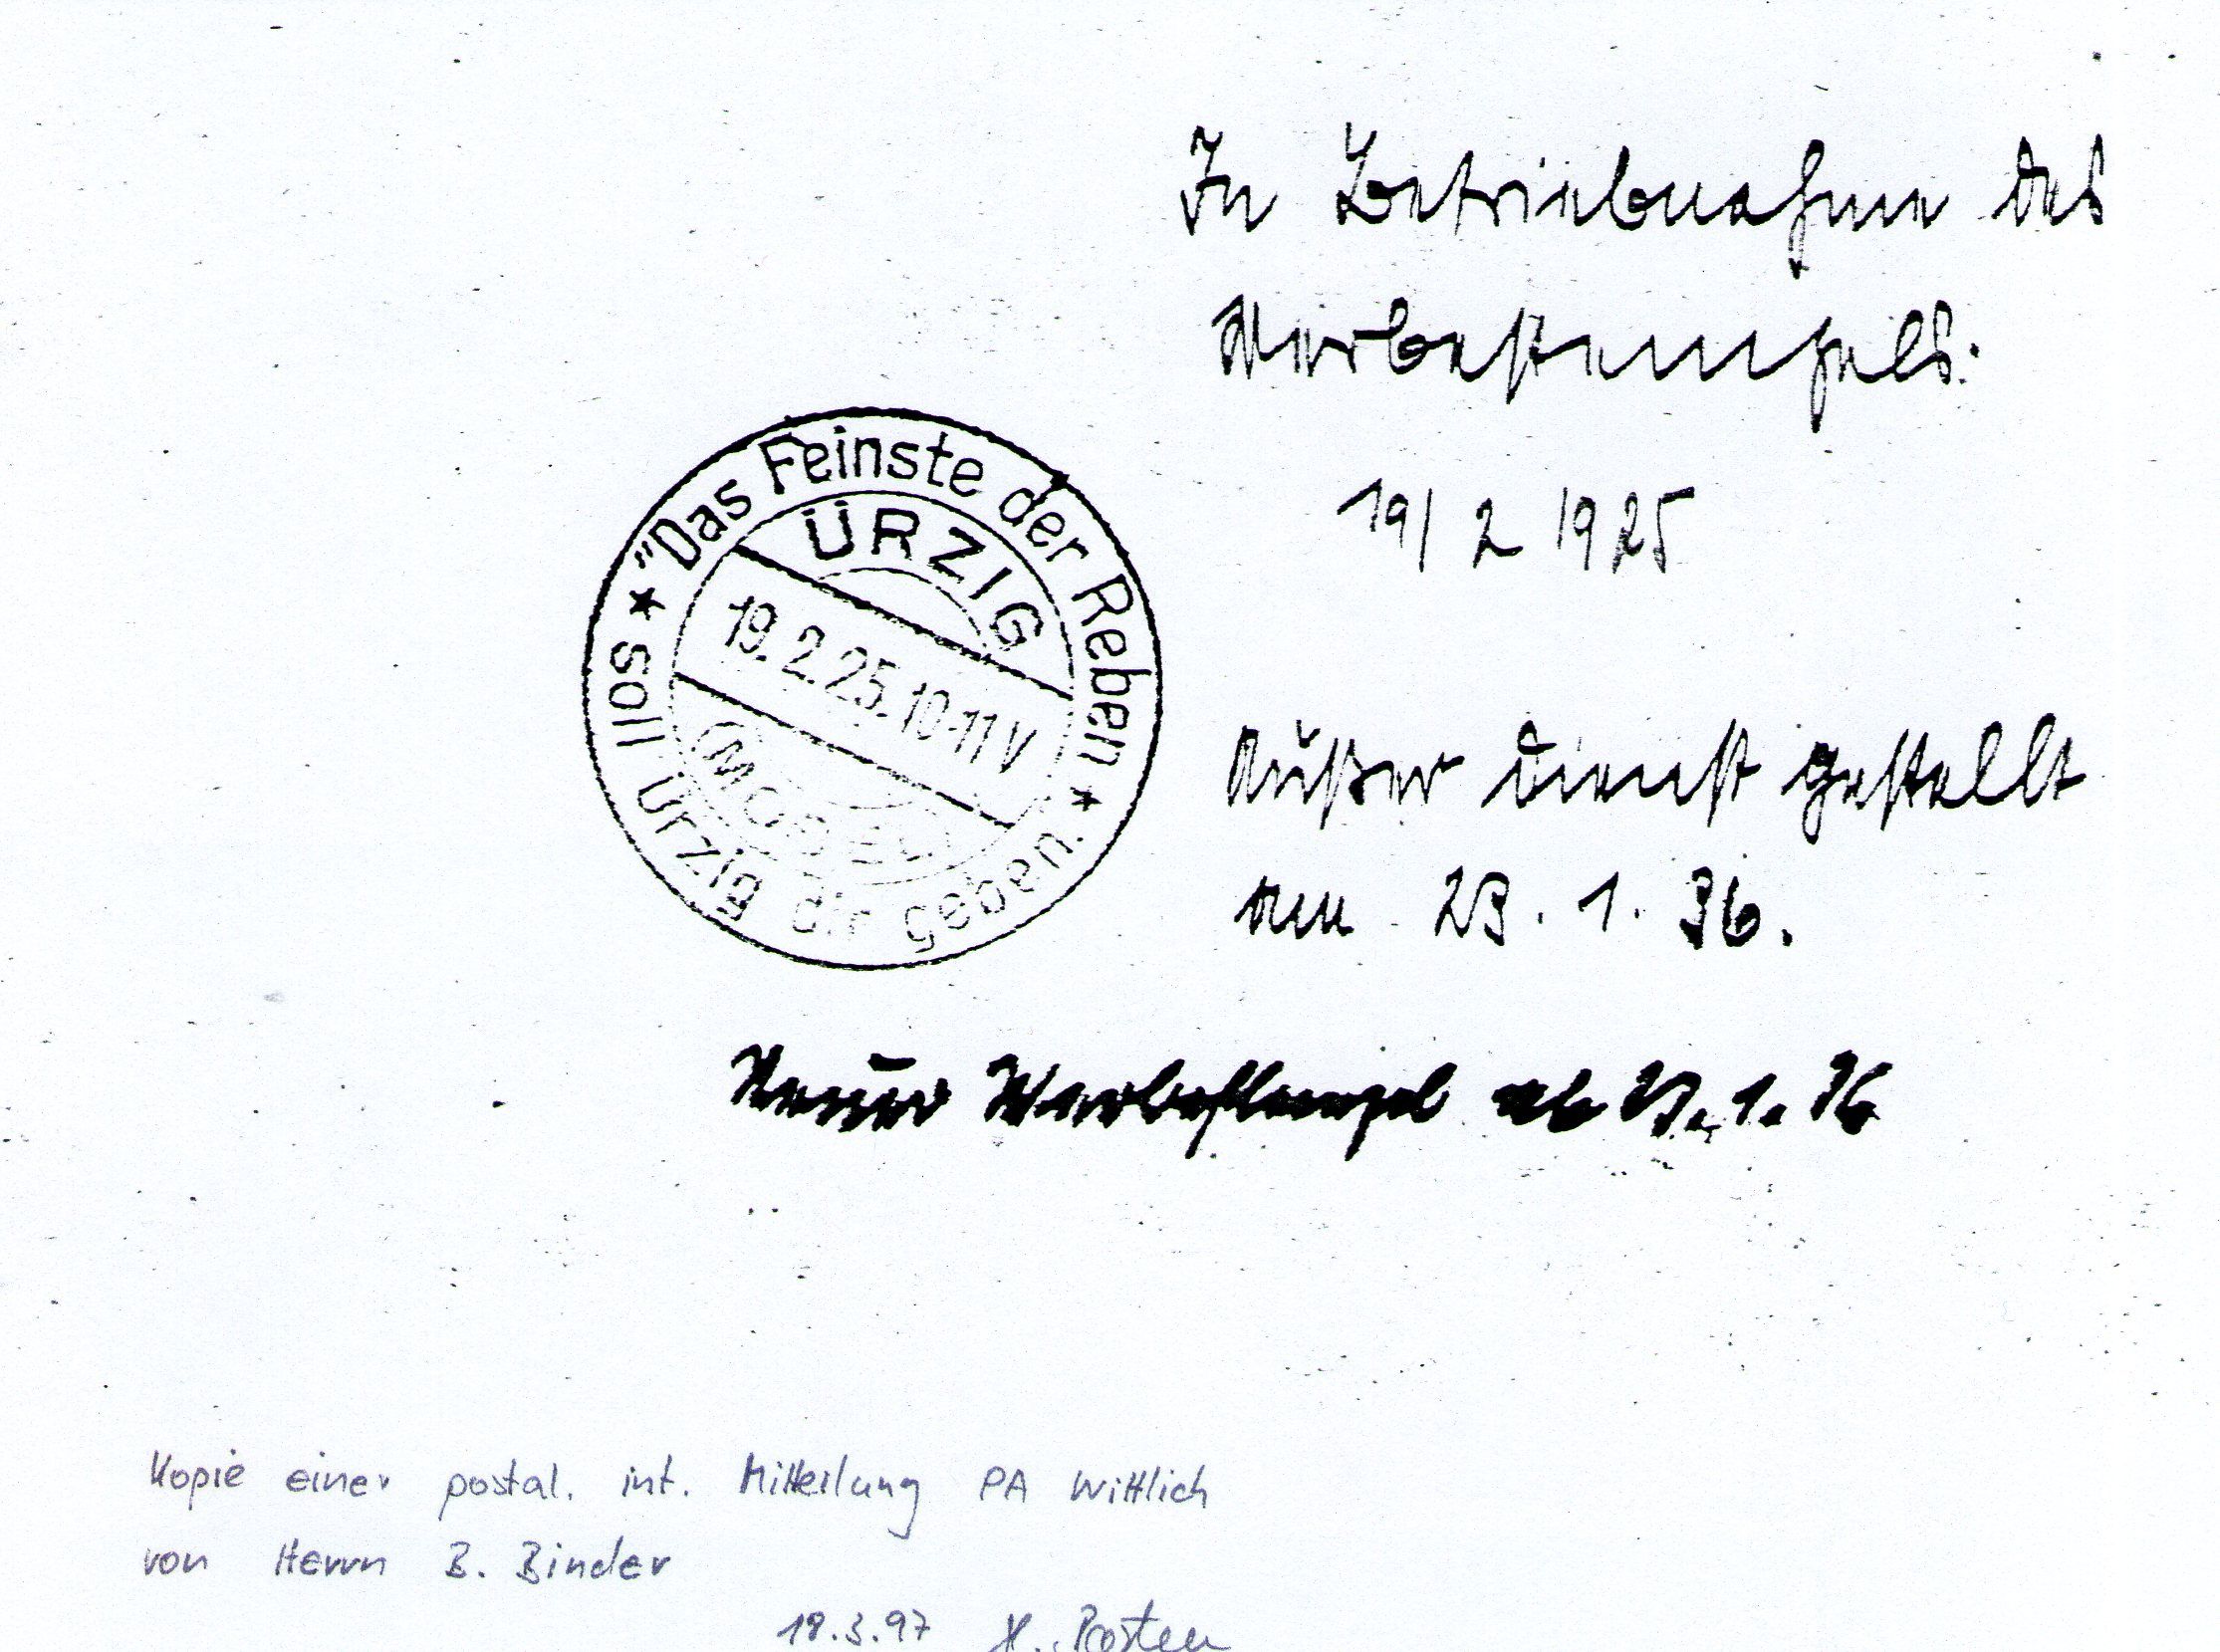 In Betriebnahme des
Werbestempels.
19/ 2 1925
"Das Feinste der Reben
soll Ürzig dir geben.
ÜRZIG
19.2.25.10-11V
(MOSEL)
Außer Dienst gestellt
am 23.1.36.
Neuer Werbestempel ab 23.1.36
Kopie einer postal. int. Mitteilung PA Wittlich
von Herrn B. Binder
18.3.97